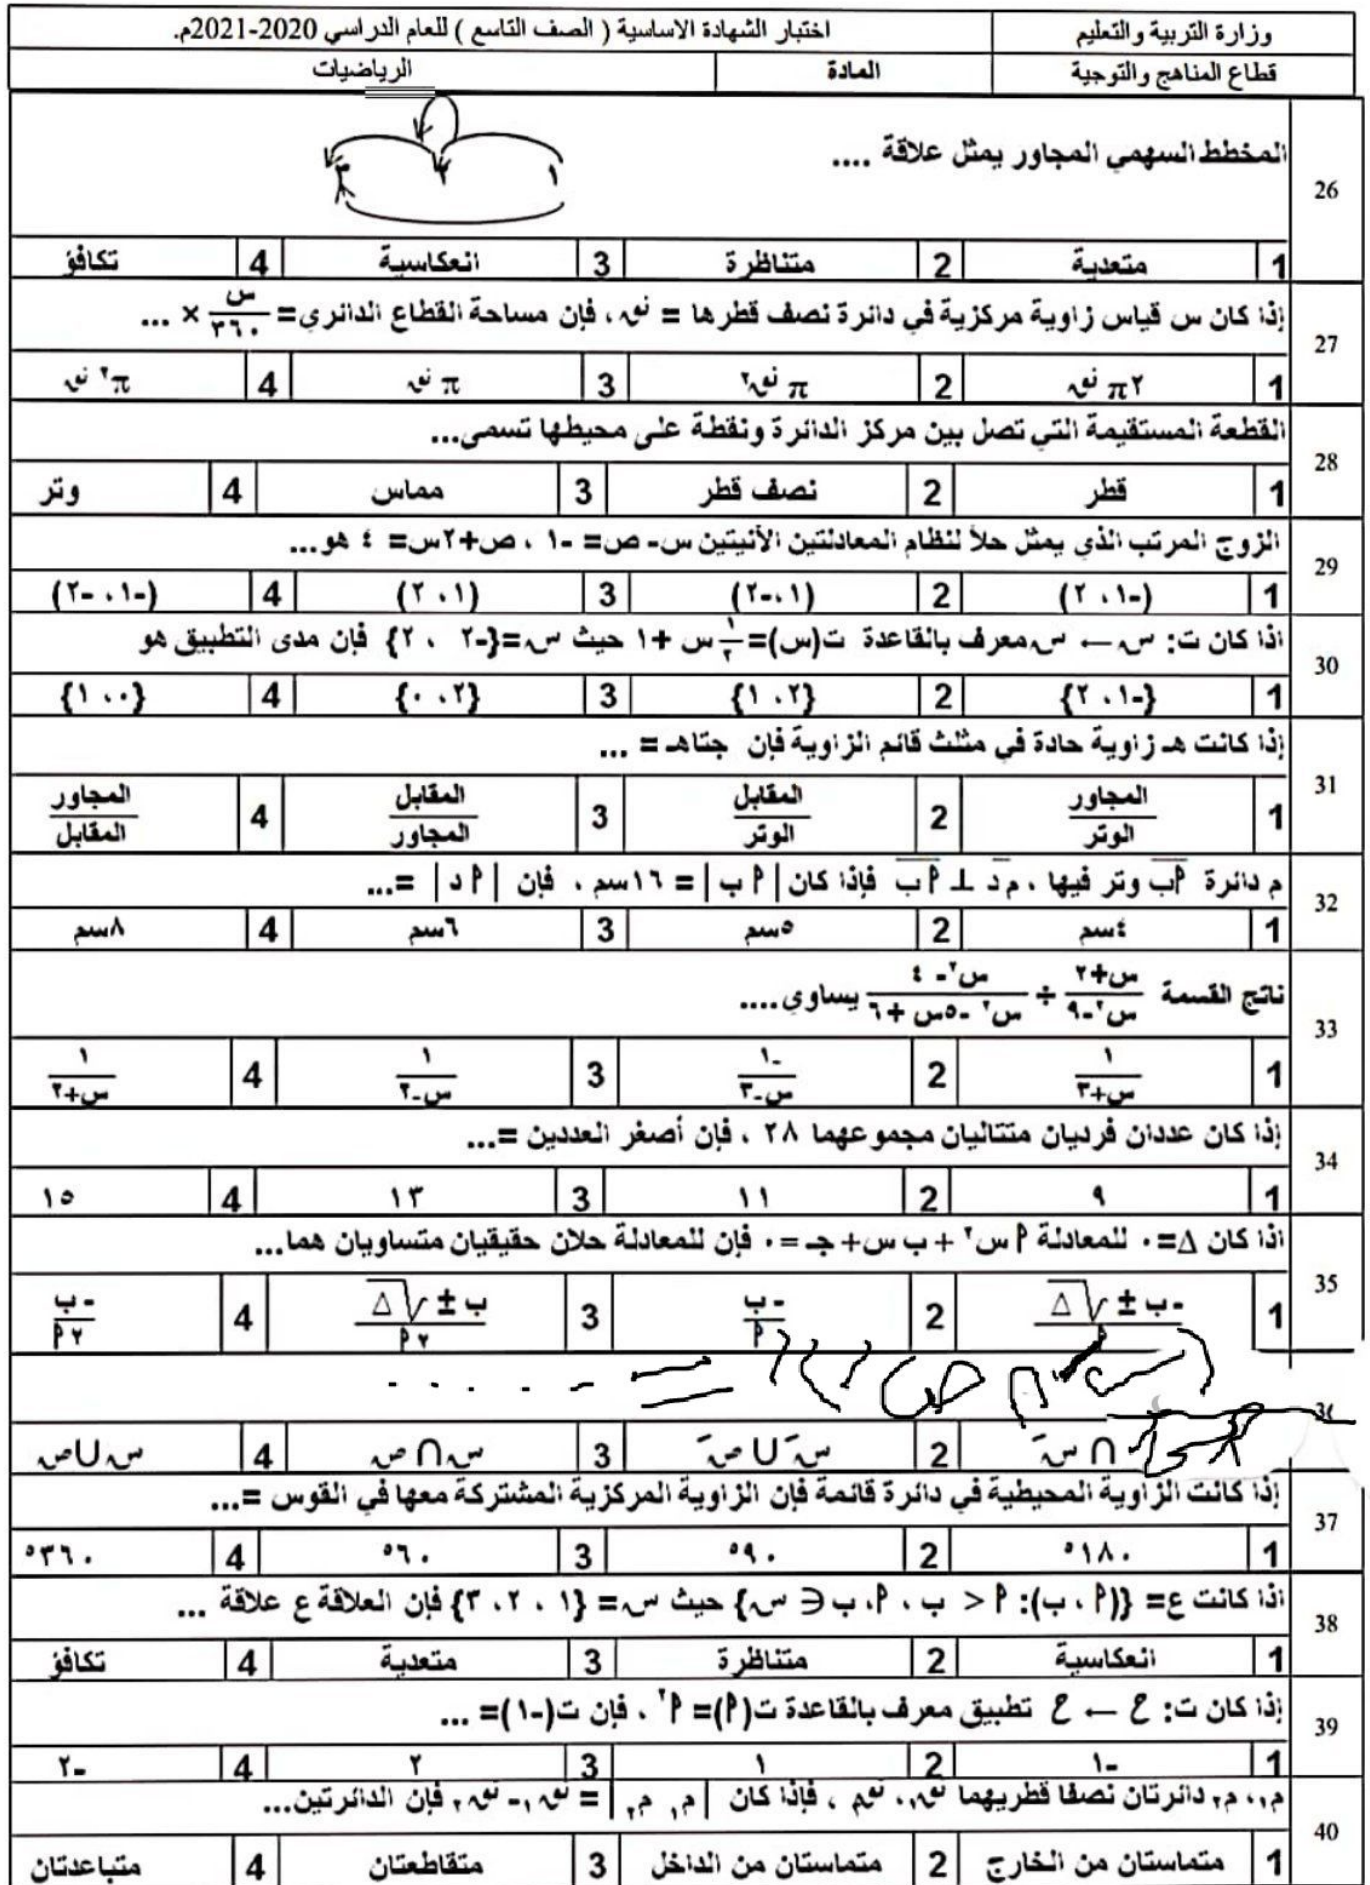 وزارة التربية والتعليم اختبار الشهادة الاساسية ( الصف التاسع ) للعام الدراسي 2020-2021م.
قطاع المناهج والتوجية المادة الرياضيات
26 المخطط السهمي المجاور يمثل علاقة ....
١ ٢ ٣
1 متعدية 2 متناظرة 3 انعكاسية 4 تكافؤ
27 إذا كان س قياس زاوية مركزية في دائرة نصف قطرها = نق ، فإن مساحة القطاع الدائري = س/٣٦٠ × ...
1 ٢π نق 2 π نق٢ 3 π نق 4 π٢ نق
28 القطعة المستقيمة التي تصل بين مركز الدائرة ونقطة على محيطها تسمى...
1 قطر 2 نصف قطر 3 مماس 4 وتر
29 الزوج المرتب الذي يمثل حلاً لنظام المعادلتين الأنيتين س- ص= -١ ، ص+٢س= ٤ هو...
1 (-١، ٢) 2 (١، -٢) 3 (١، ٢) 4 (-١، -٢)
30 اذا كان ت: س ← س معرف بالقاعدة ت(س)= ١/٢ س +١ حيث س={-٢ ، ٢} فإن مدى التطبيق هو
1 {-١، ٢} 2 {٢، ١} 3 {٢، ٠} 4 {٠، ١}
31 إذا كانت هـ زاوية حادة في مثلث قائم الزاوية فإن جتاهـ = ...
1 المجاور/الوتر 2 المقابل/الوتر 3 المقابل/المجاور 4 المجاور/المقابل
32 م دائرة أب وتر فيها ، م د ⊥ أب فإذا كان |أ ب| = ١٦سم ، فإن |أ د| =...
1 ٤سم 2 ٥سم 3 ٦سم 4 ٨سم
33 ناتج القسمة س+٢/س٢-٩ ÷ س٢- ٤/س٢ -٥س +٦ يساوي....
1 ١/س+٣ 2 -١/س-٣ 3 ١/س-٢ 4 ١/س+٢
34 إذا كان عددان فرديان متتاليان مجموعهما ٢٨ ، فإن أصغر العددين =...
1 ٩ 2 ١١ 3 ١٣ 4 ١٥
35 اذا كان Δ=٠ للمعادلة أ س٢ + ب س+ جـ =٠ فإن للمعادلة حلان حقيقيان متساويان هما...
1 -ب ± √Δ/أ 2 -ب/أ 3 ب ± √Δ/٢أ 4 -ب/٢أ
= .......
∩ سَ 2 سَ ∪ صَ 3 س ∩ ص 4 س ∪ ص
37 إذا كانت الزاوية المحيطية في دائرة قائمة فإن الزاوية المركزية المشتركة معها في القوس =...
1 ١٨٠° 2 ٩٠° 3 ٦٠° 4 ٣٦٠°
38 اذا كانت ع= {(أ، ب): أ < ب ، أ، ب ∈ س} حيث س= {١ ، ٢، ٣} فإن العلاقة ع علاقة ...
1 انعكاسية 2 متناظرة 3 متعدية 4 تكافؤ
39 إذا كان ت: ح ← ح تطبيق معرف بالقاعدة ت(أ)= أ٢ ، فإن ت(-١)= ...
1 -١ 2 ١ 3 ٢ 4 -٢
40 م١، م٢ دائرتان نصفا قطريهما نق١، نق٢ ، فإذا كان |م١ م٢| = نق١- نق٢ فإن الدائرتين...
1 متماستان من الخارج 2 متماستان من الداخل 3 متقاطعتان 4 متباعدتان